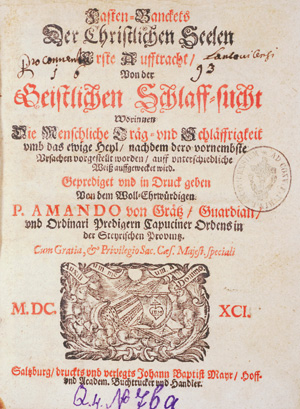 Fasten-Banckets
Der Christlichen Seelen
Erste Aufftracht/
Von der
Geistlichen Schlaff-sucht
Worinnen
Die Menschliche Träg- und Schläffrigkeit
umb das ewige Heyl/ nachdem dero vornembste
Ursachen vorgestellt worden/ auff unterschiedliche
Weiß auffgewecket wird.
Geprediget und in Druck geben
Von dem Woll-Ehrwürdigen.
P. AMANDO von Grätz/ Guardian/
und Ordinari Predigern Capuciner Ordens in
der Steyrischen Provintz.
Cum Gratia, & Privilegio Sac. Cæs. Majest. speciali
M.DC. XCI.
Saltzburg/ druckts und verlegts Johann Baptist Mayr/ Hoff-
und Academ. Buchtrucker und Handler.
24. No 76a